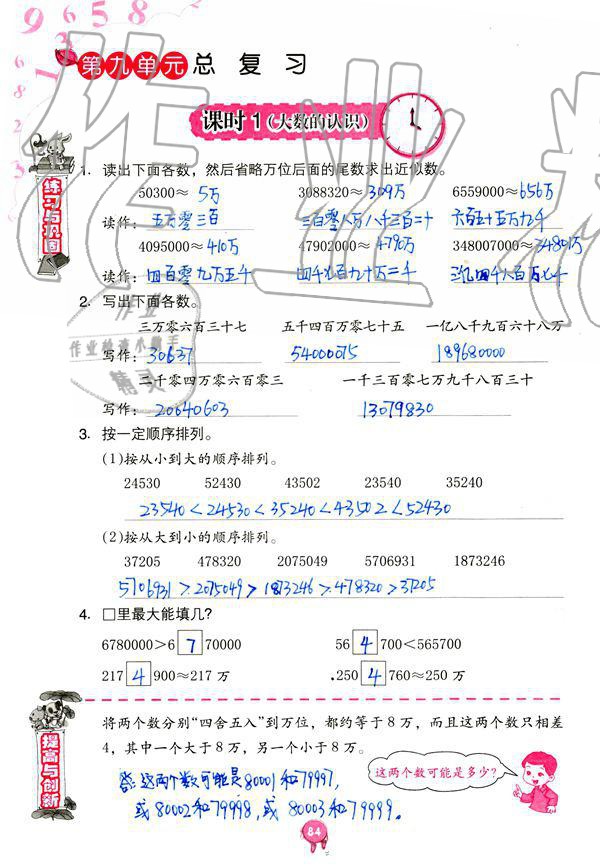 9 6 5 8
第九单元 总 复 习
课时1(大数的认识)
练习与巩固
1. 读出下面各数，然后省略万位后面的尾数求出近似数。
50300≈ 5万 3088320≈ 309万 6559000≈ 656万
读作： 五万零三百 三百零八万八千三百二十 六百五十五万九千
4095000≈ 410万 47902000≈ 4790万 348007000≈ 34801万
读作： 四百零九万五千 四千七百九十万二千 三亿四千八百万七千
2. 写出下面各数。
三万零六百三十七 五千四百万零七十五 一亿八千九百六十八万
写作： 30637 54000075 189680000
二千零四万零六百零三 一千三百零七万九千八百三十
写作： 20040603 13079830
3. 按一定顺序排列。
(1)按从小到大的顺序排列。
24530 52430 43502 23540 35240
23540<24530<35240<43502<52430
(2)按从大到小的顺序排列。
37205 478320 2075049 5706931 1873246
5706931>2075049>1873246>478320>37205
4. □里最大能填几？
6780000>6 7 70000 56 4 700<565700
217 4 900≈217 万 250 4 760≈250 万
提高与创新
将两个数分别“四舍五入”到万位，都约等于 8 万，而且这两个数只相差
4，其中一个大于 8 万，另一个小于 8 万。
这两个数可能是多少？
答：这两个数可能是80001和79997，
或80002和79998，或80003和79999。
84